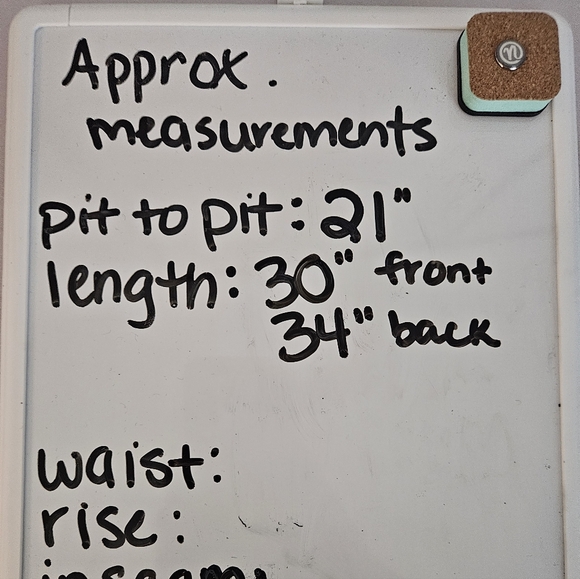 Approx.
measurements
pit to pit: 21"
length: 30" front
34" back
waist:
rise:
inseam: